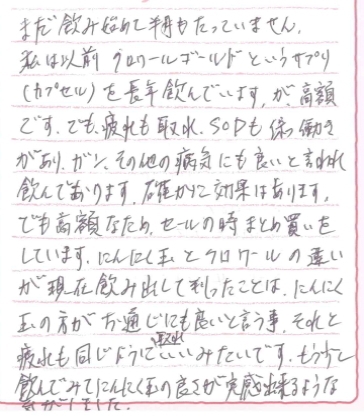 まだ飲み始めて半月もたっていません。
私は以前クロワールゴールドというサプリ
(カプセル)を長年飲んでいますが、高額
です。でも、疲れも取れ、SODも係の働き
があり、ガン、その他の病気にも良いと言われ
飲んであります。確かに効果はあります。
でも高額なため、セールの時まとめ買いを
しています。にんにく玉とクロワールの違い
が現在飲み出して判ったことは、にんにく
玉の方がお通じにも良いと言う事、それと
疲れも同じように取れいいみたいです。もう少し
飲んでみてにんにく玉の良さが実感出来るような
気がしました。